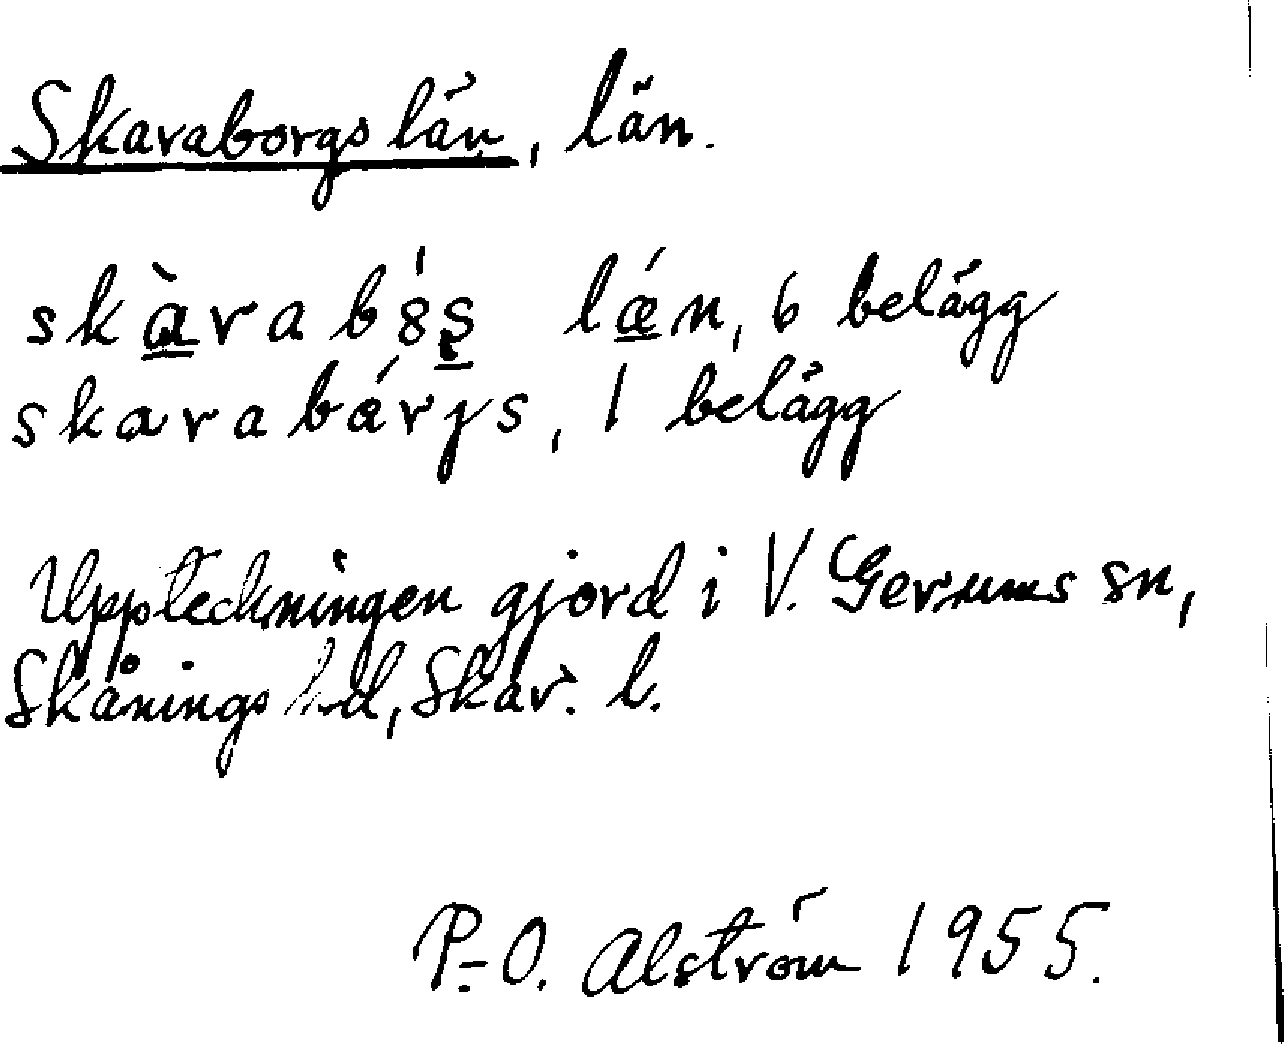 Skaraborgs län, län.
skàrabó̤s̱ lǽn, 6 belägg
skarabárjs, 1 belägg
Uppteckningen gjord i V. Gerums sn,
Skånings hd, Skar. l.
P.-O. Alström 1955.